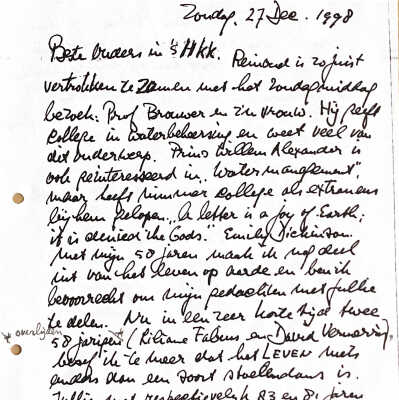 Zondag, 27 Dec. 1998
Beste Ouders in 's Hkk. Reinoud is zojuist
vertrokken te zamen met het zondagmiddag
bezoek: Prof Brouwer en z'n vrouw. Hij geeft
college in waterbeheersing en weet veel van
dit onderwerp. Prins Willem Alexander is
ook geïnteresseerd in "Water management",
maar heeft nimmer college als extraneus
bij hem gelopen. "A letter is a joy of Earth;
it is denied the Gods." Emily Dickinson.
Met mijn 58 jaren maak ik nog deel
uit van het leven op aarde en ben ik
bevoorrecht om mijn gedachten met jullie
te delen. Nu in een zeer korte tijd twee
overlijden
58 jarigen (Liliane Fabius en David Vermorring)
besef ik te meer dat het LEVEN niets
anders dan een soort stoelendans is.
Jullie met respectievelijk 83 en 81 jaren